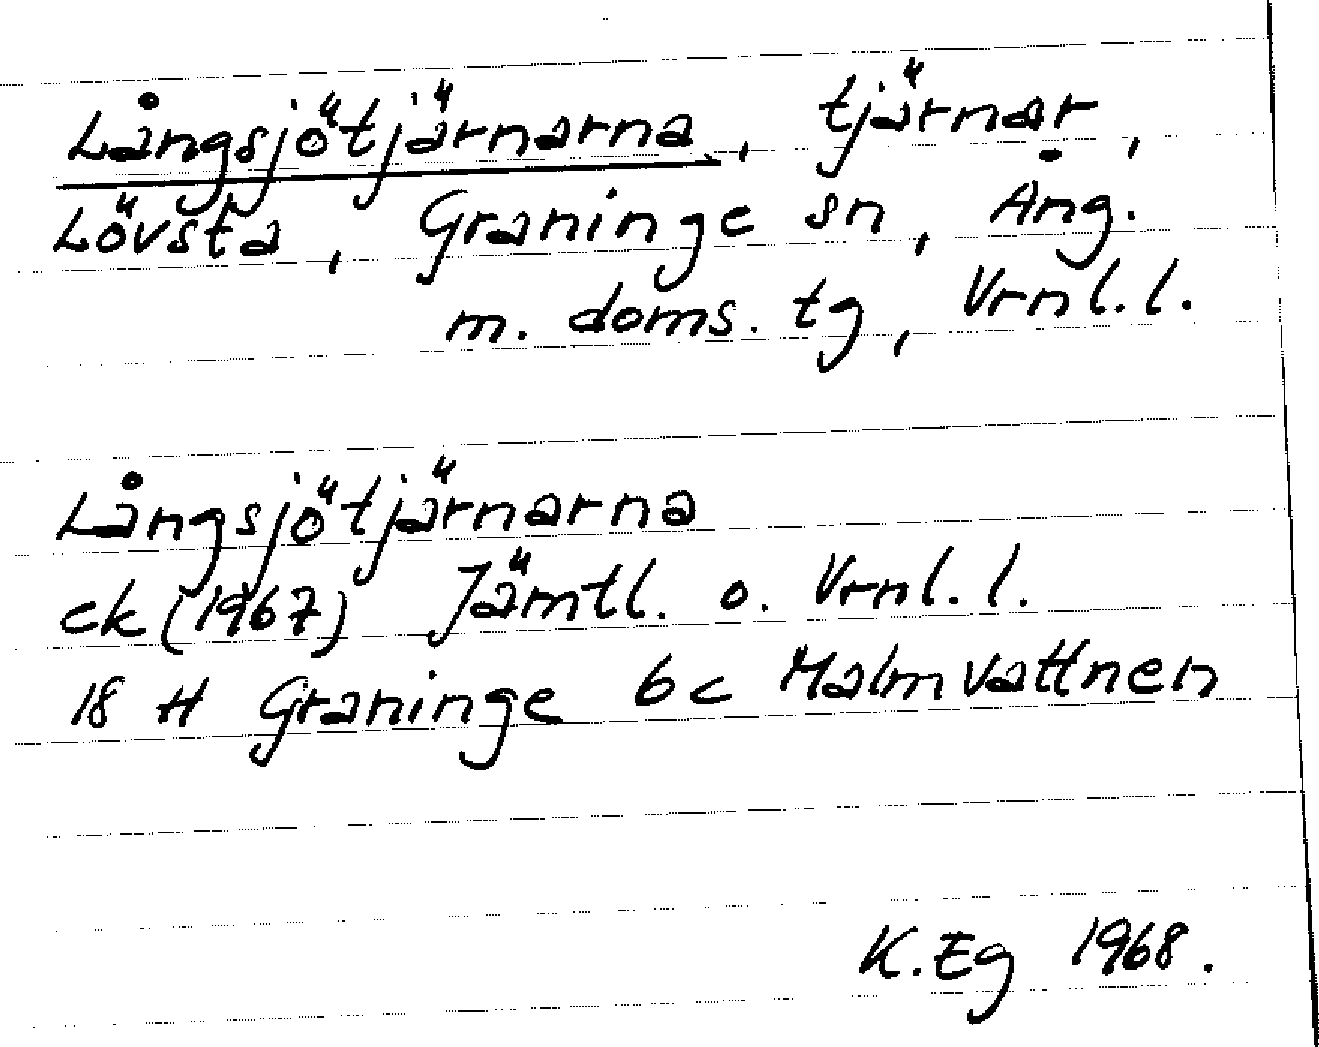 Långsjötjärnarna, tjärnar,
Lövsta, Graninge sn, Ång.
m. doms. tg, Vrnl. l.
Långsjötjärnarna
ek (1967) Jämtl. o. Vrnl. l.
18 H Graninge 6c Malmvattnen
K. Eg 1968.